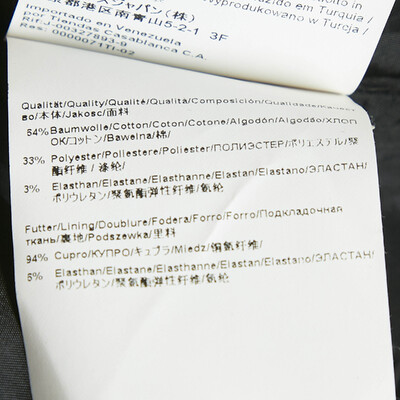 スジャパン(株)
京都港区南青山5-2-1 3F
Rif.: 00327893-9
Importado en Venezuela
por Tiendas Casablanca C.A.
Ref.: 0000071TI-02
Turquia /
wyprodukowano w Turcja /
Qualität/Quality/Qualité/Qualità/Composición/Qualidade
во/本体/Jakosc/面料
64% Baumwolle/Cotton/Coton/Cotone/Algodón/Algodão/ХЛОП
OK/コットン/Bawelna/棉/
33% Polyester/Poliestere/Poliester/ПОЛИЭСТЕР/ポリエステル/聚
酯纤维 / 涤纶/
3% Elasthan/Elastane/Elasthanne/Elastan/Elastano/ЭЛАСТАН/
ポリウレタン/聚氨酯弹性纤维/氨纶
Futter/Lining/Doublure/Fodera/Forro/Forro/Подкладочная
ткань/裏地/Podszewka/里料
94% Cupro/КУПРО/キュプラ/Miedz/铜氨纤维/
6% Elasthan/Elastane/Elasthanne/Elastan/Elastano/ЭЛАСТАН/
ポリウレタン/聚氨酯弹性纤维/氨纶